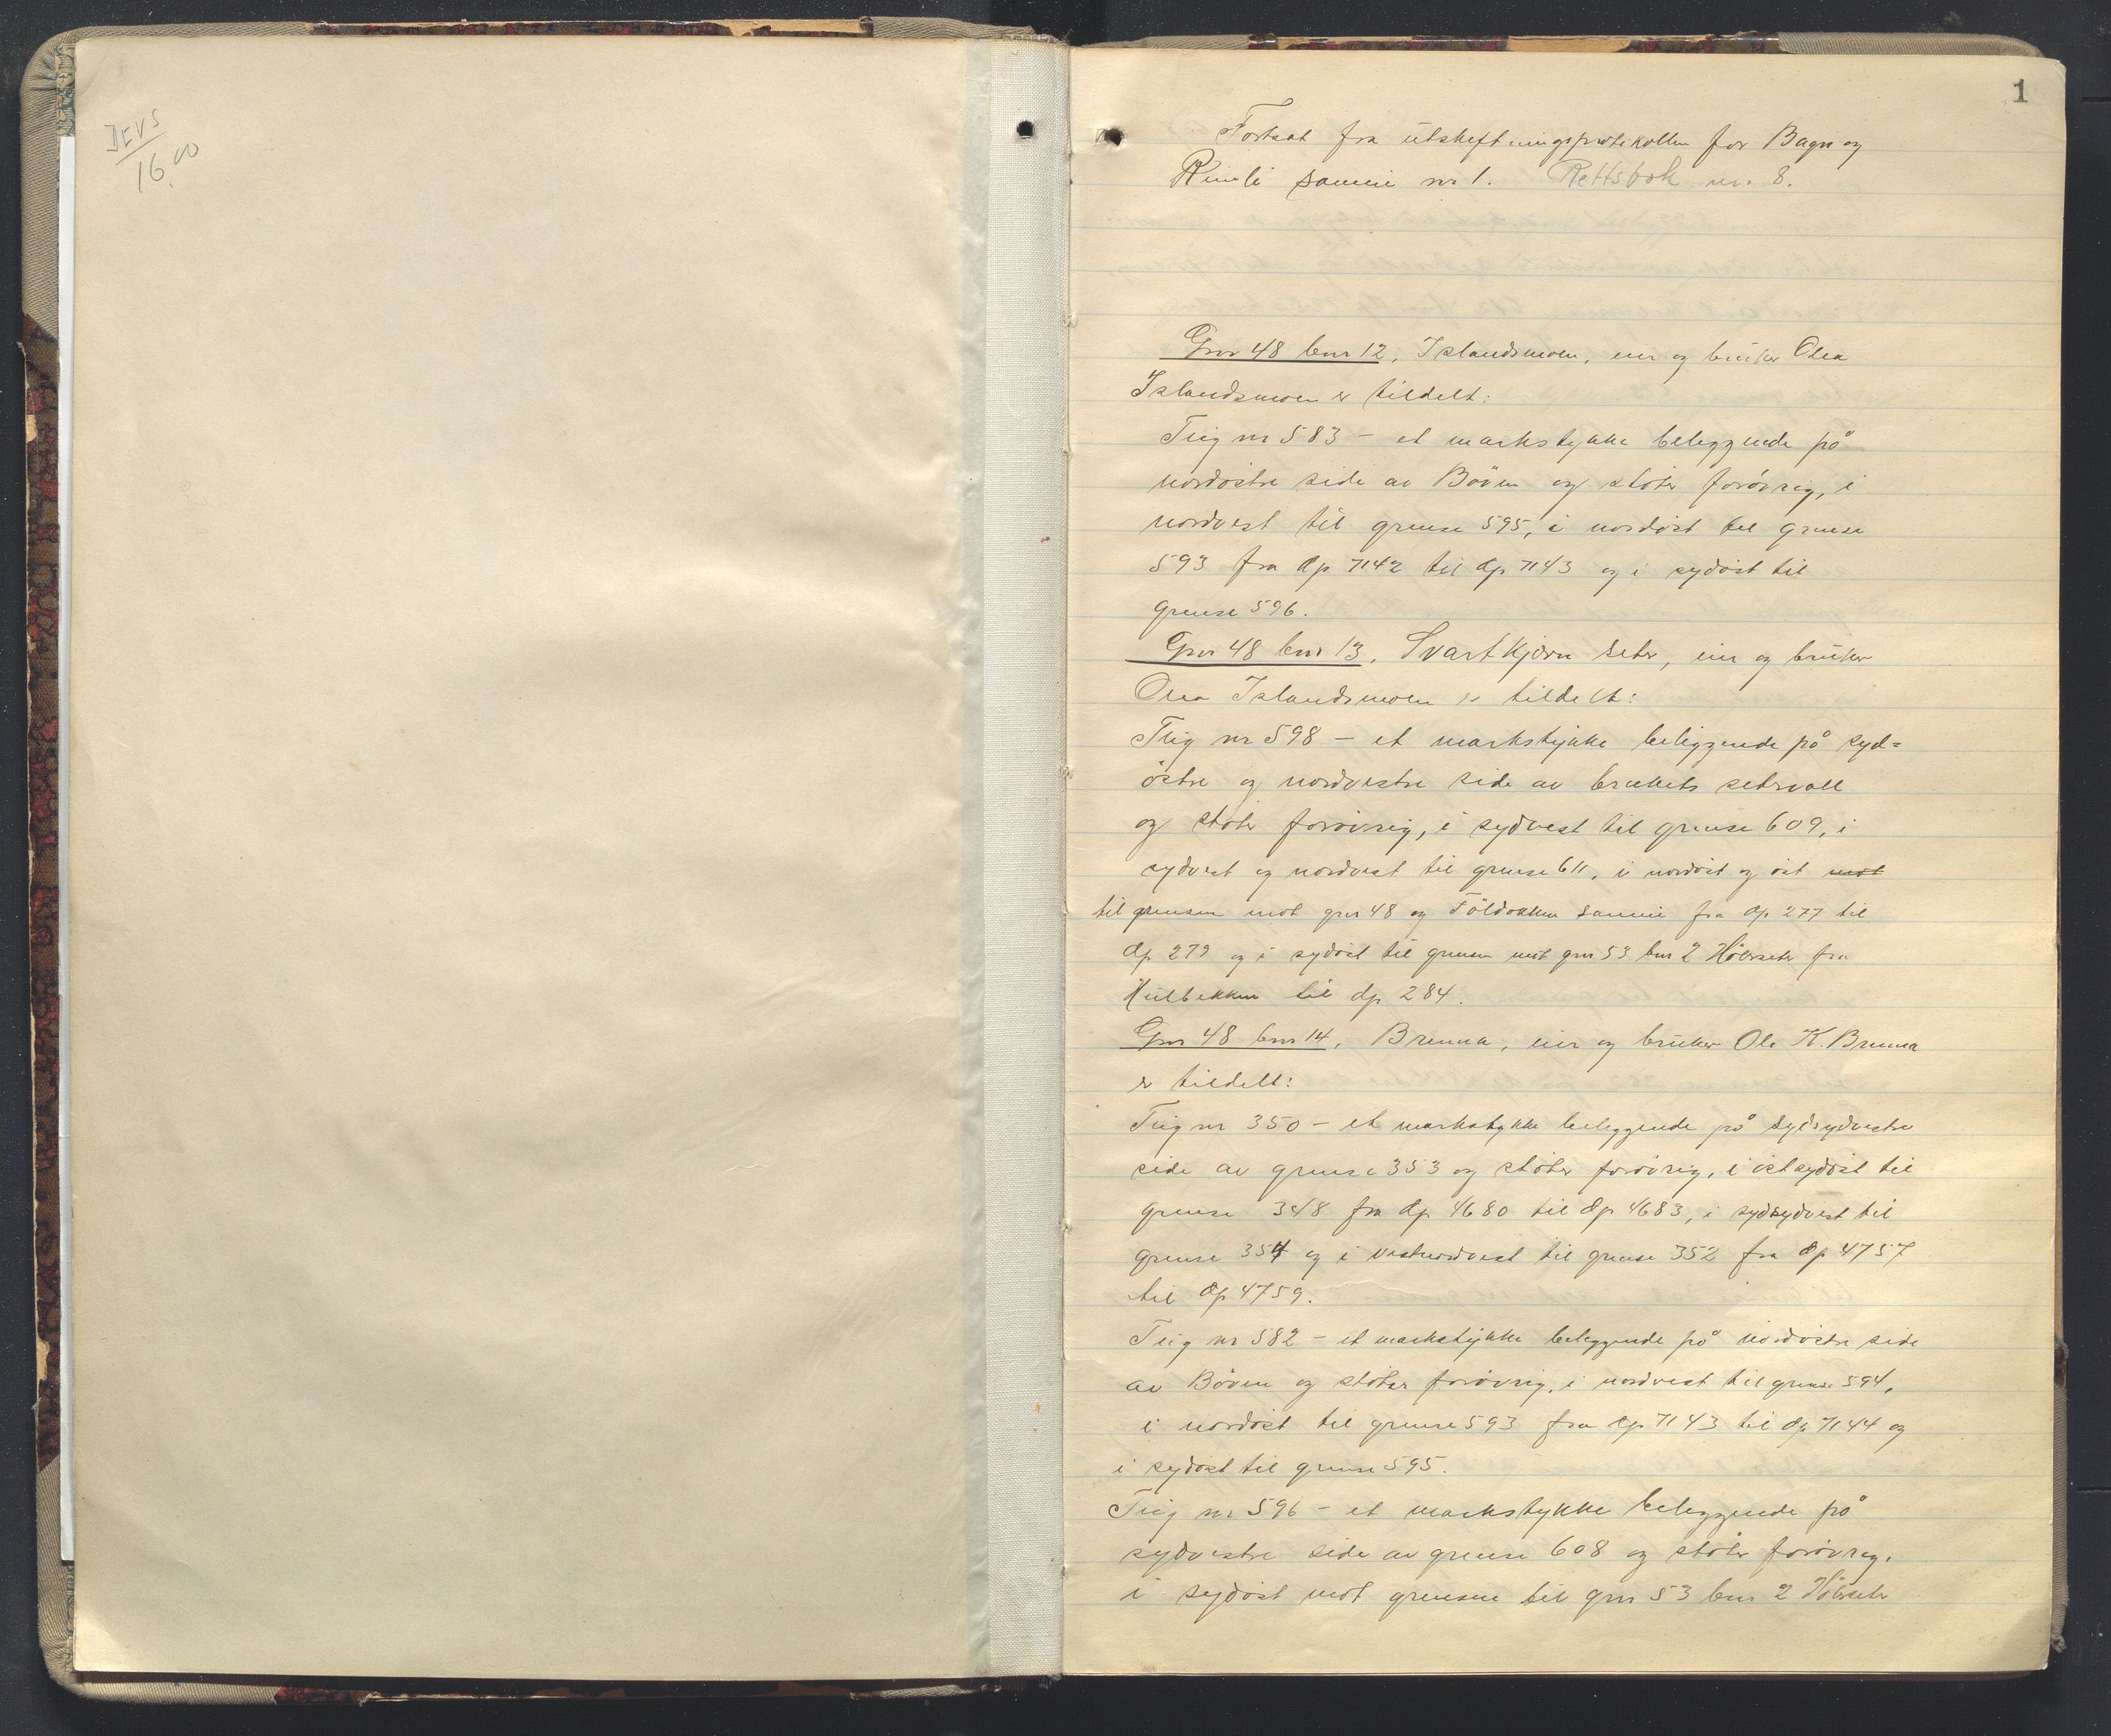 JEVS
16.00
1
Fortsat fra utskiftningsprotokollen for Bagn og
Rimli sameie nr 1. Rettsbok nr. 8.
Gnr 48 bnr 12, Islandsmoen, eier og bruker Olea
Islandsmoen er tildelt:
Teig nr 583 – et markstykke beliggende på
nordöstre side av Böven og stöter forövrig, i
nordvest til grense 595, i nordöst til grense
593 fra dp 7142 til dp 7143 og i sydöst til
grense 596.
Gnr 48 bnr 13, Svartkjern seter, eier og bruker
Olea Islandsmoen er tildelt:
Teig nr 598 – et markstykke beliggende på syd=
östre og nordvestre side av brukets setervoll
og stöter forövrig, i sydvest til grense 609, i
sydvest og nordvest til grense 611, i nordöst og öst mot
til grensen mot gnr 48 og Földokken sameie fra dp 277 til
dp 279 og i sydöst til grensen mot gnr 53 bnr 2 Hölerseter fra
Hulbekken til dp 284.
Gnr 48 bnr 14, Brenna, eier og bruker Ole K. Brenna
er tildelt:
Teig nr 350 – et markstykke beliggende på sydsydvestre
side av grense 353 og stöter forövrig, i östsydöst til
grense 348 fra dp 4680 til dp 4683, i sydsydvest til
grense 354 og i vestnordvest til grense 352 fra dp 4757
til dp 4759.
Teig nr 582 – et markstykke beliggende på nordöstre side
av Böven og stöter forövrig, i nordvest til grense 594,
i nordöst til grense 593 fra dp 7143 til dp 7144 og
i sydöst til grense 595.
Teig nr 596 – et markstykke beliggende på
sydvestre side av grense 608 og stöter forövrig,
i sydöst mot grensen til gnr 53 bnr 2 Hölerseter